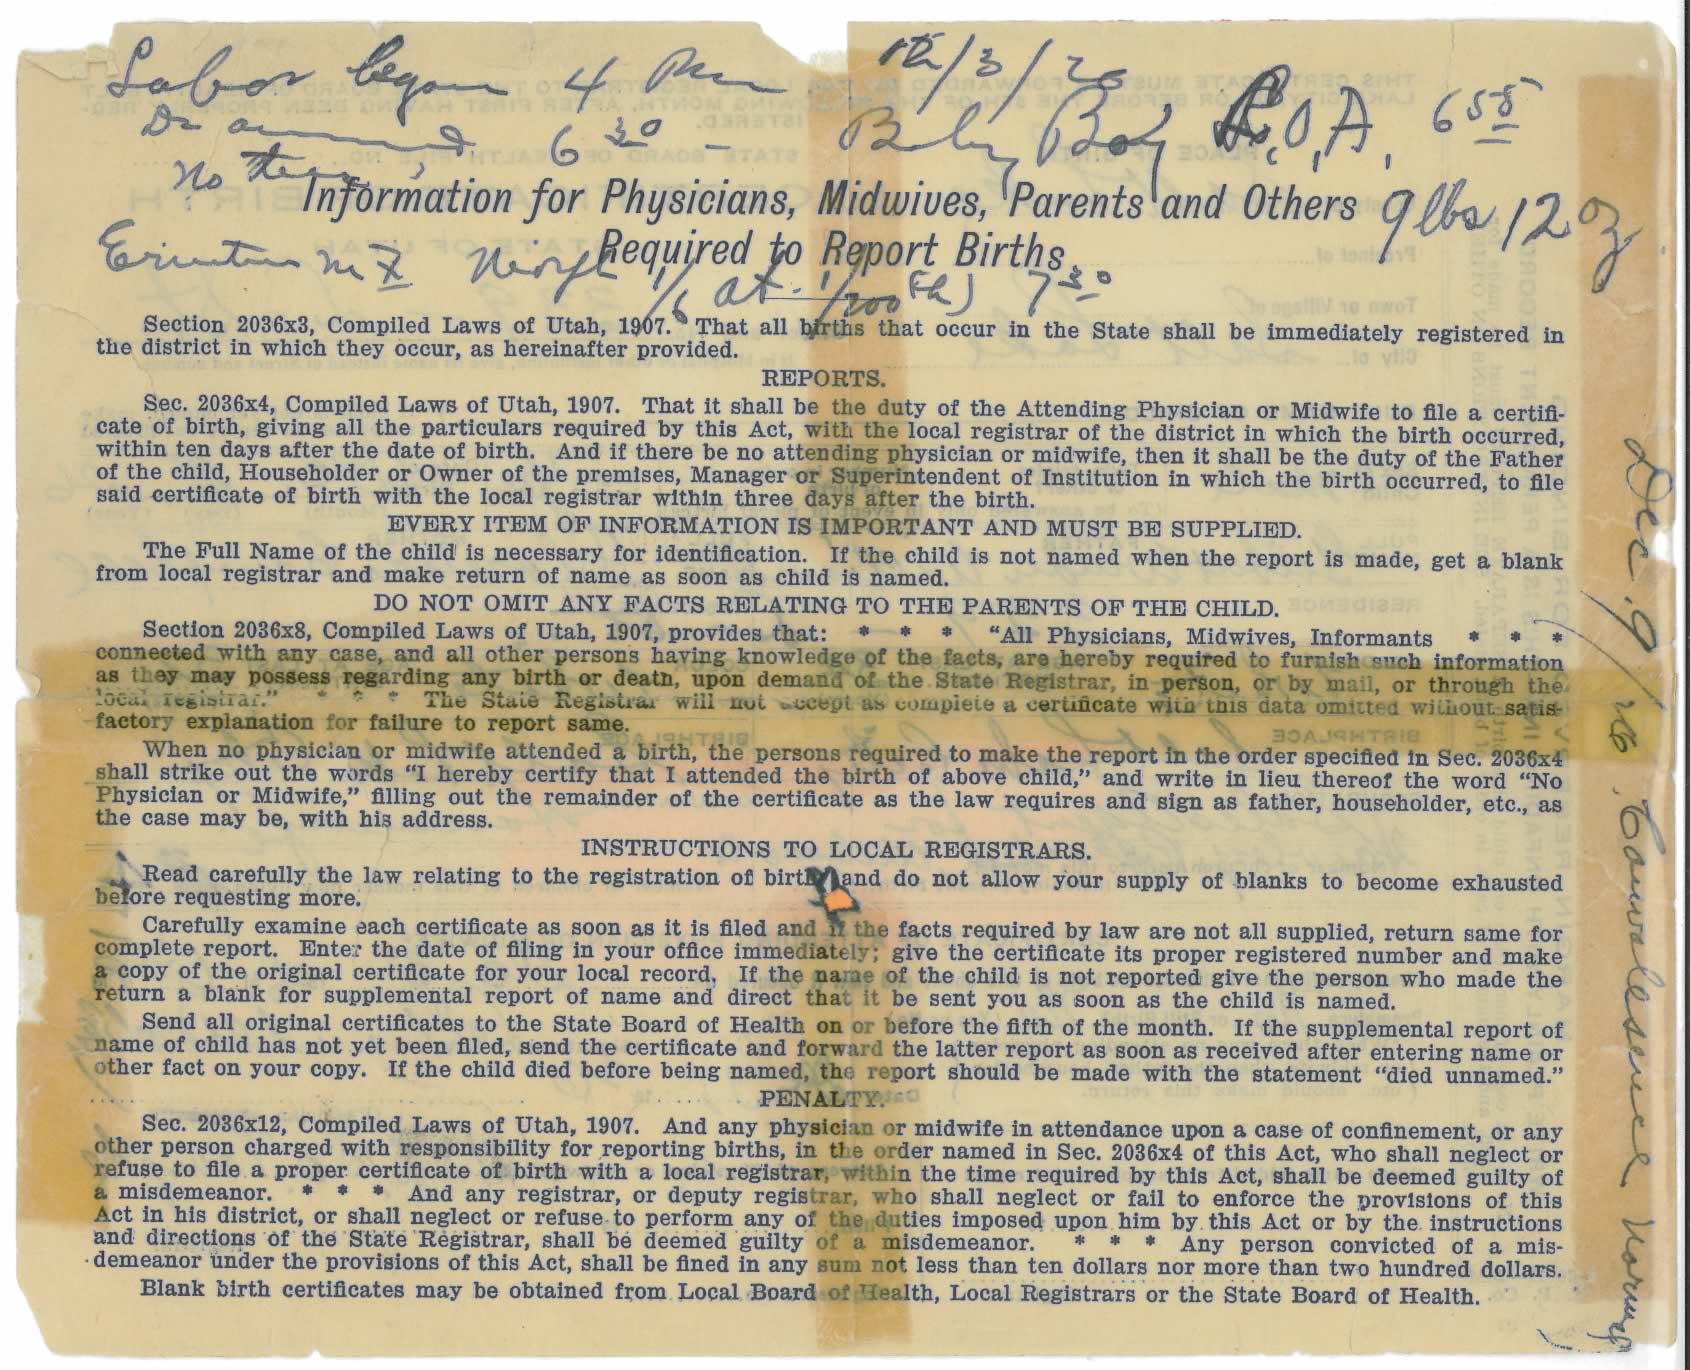 Labor began 4 Pm
12/3/26
Dr 6 30 -
Baby Boy L.O.A. 6 55
No tear
Information for Physicians, Midwives, Parents and Others
9 lbs 12 oz
Required to Report Births
m x 1/6 at. 1/200 7 30
Section 2036x3, Compiled Laws of Utah, 1907. That all births that occur in the State shall be immediately registered in
the district in which they occur, as hereinafter provided.
REPORTS.
Sec. 2036x4, Compiled Laws of Utah, 1907. That it shall be the duty of the Attending Physician or Midwife to file a certifi-
cate of birth, giving all the particulars required by this Act, with the local registrar of the district in which the birth occurred,
within ten days after the date of birth. And if there be no attending physician or midwife, then it shall be the duty of the Father
of the child, Householder or Owner of the premises, Manager or Superintendent of Institution in which the birth occurred, to file
said certificate of birth with the local registrar within three days after the birth.
EVERY ITEM OF INFORMATION IS IMPORTANT AND MUST BE SUPPLIED.
The Full Name of the child is necessary for identification. If the child is not named when the report is made, get a blank
from local registrar and make return of name as soon as child is named.
DO NOT OMIT ANY FACTS RELATING TO THE PARENTS OF THE CHILD.
Section 2036x8, Compiled Laws of Utah, 1907, provides that: * * * "All Physicians, Midwives, Informants * * *
connected with any case, and all other persons having knowledge of the facts, are hereby required to furnish such information
as they may possess regarding any birth or death, upon demand of the State Registrar, in person, or by mail, or through the
local registrar." * * * The State Registrar will not accept as complete a certificate with this data omitted without satis-
factory explanation for failure to report same.
When no physician or midwife attended a birth, the persons required to make the report in the order specified in Sec. 2036x4
shall strike out the words "I hereby certify that I attended the birth of above child," and write in lieu thereof the word "No
Physician or Midwife," filling out the remainder of the certificate as the law requires and sign as father, householder, etc., as
the case may be, with his address.
INSTRUCTIONS TO LOCAL REGISTRARS.
Read carefully the law relating to the registration of birth and do not allow your supply of blanks to become exhausted
before requesting more.
Carefully examine each certificate as soon as it is filed and if the facts required by law are not all supplied, return same for
complete report. Enter the date of filing in your office immediately; give the certificate its proper registered number and make
a copy of the original certificate for your local record. If the name of the child is not reported give the person who made the
return a blank for supplemental report of name and direct that it be sent you as soon as the child is named.
Send all original certificates to the State Board of Health on or before the fifth of the month. If the supplemental report of
name of child has not yet been filed, send the certificate and forward the latter report as soon as received after entering name or
other fact on your copy. If the child died before being named, the report should be made with the statement "died unnamed."
PENALTY.
Sec. 2036x12, Compiled Laws of Utah, 1907. And any physician or midwife in attendance upon a case of confinement, or any
other person charged with responsibility for reporting births, in the order named in Sec. 2036x4 of this Act, who shall neglect or
refuse to file a proper certificate of birth with a local registrar, within the time required by this Act, shall be deemed guilty of
a misdemeanor. * * * And any registrar, or deputy registrar, who shall neglect or fail to enforce the provisions of this
Act in his district, or shall neglect or refuse to perform any of the duties imposed upon him by this Act or by the instructions
and directions of the State Registrar, shall be deemed guilty of a misdemeanor. * * * Any person convicted of a mis-
demeanor under the provisions of this Act, shall be fined in any sum not less than ten dollars nor more than two hundred dollars.
Blank birth certificates may be obtained from Local Board of Health, Local Registrars or the State Board of Health.
Dec. 9/26, Convalescence Normal